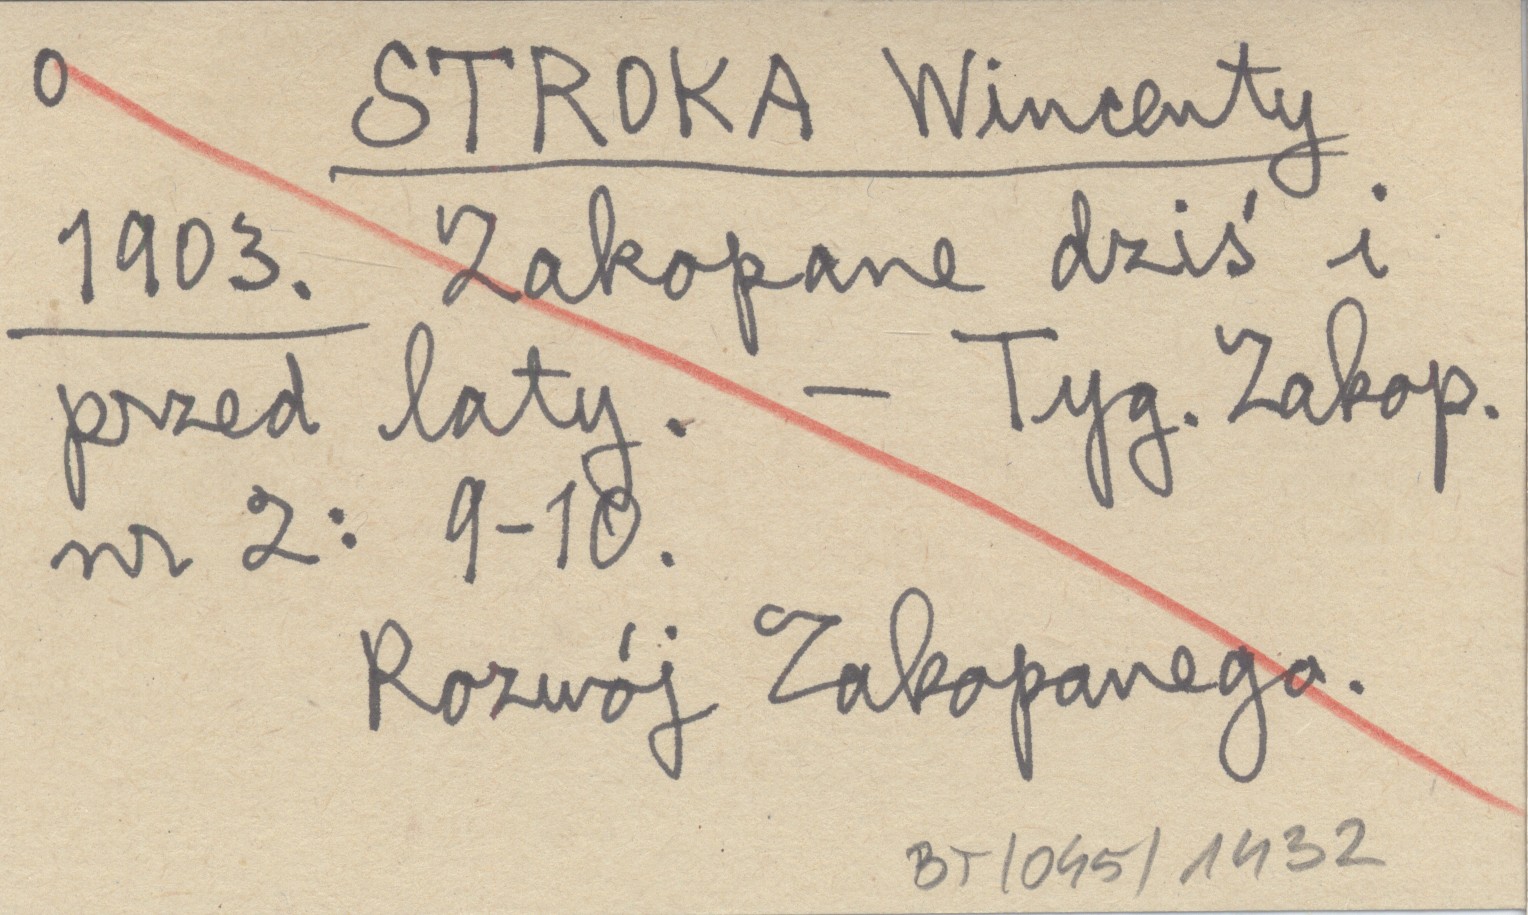 0 STROKA Wincenty
1903. Zakopane dziś i
przed laty. – Tyg. Zakop.
nr 2: 9-10.
Rozwój Zakopanego.
BT/045/1432